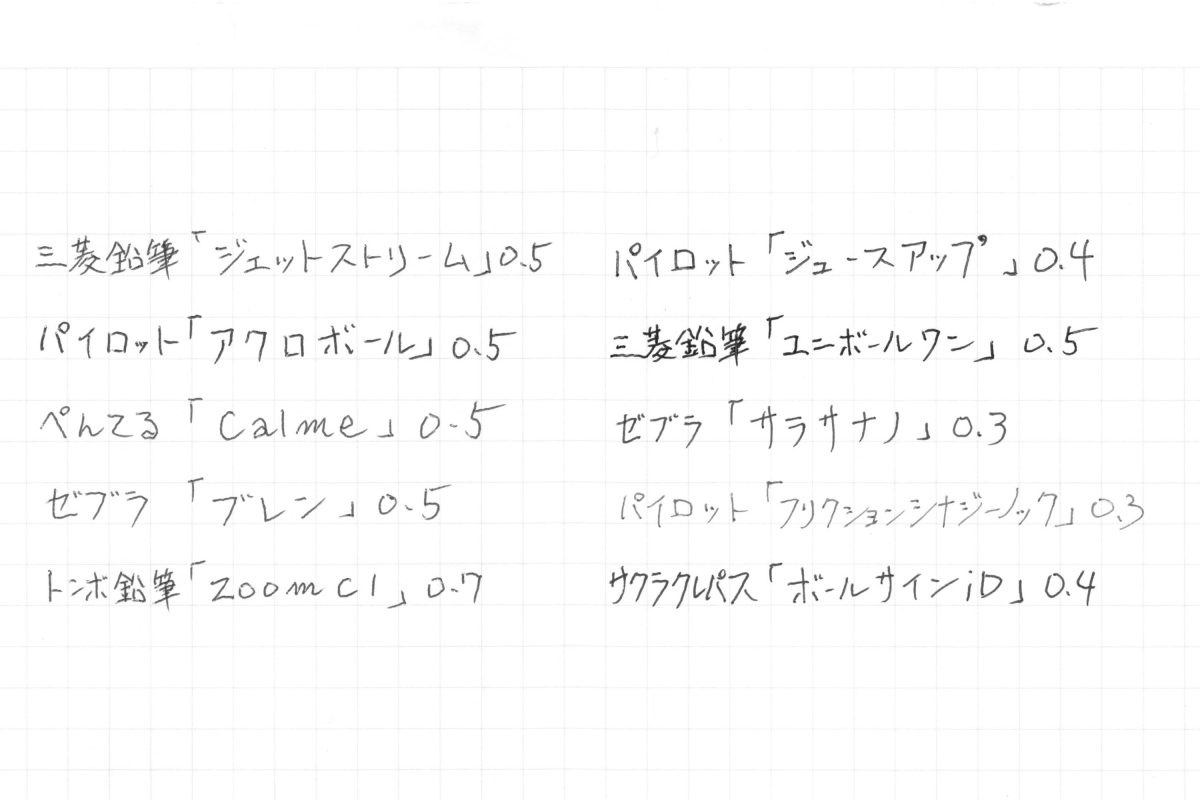 三菱鉛筆「ジェットストリーム」0.5
パイロット「アクロボール」0.5
ぺんてる「Calme」0.5
ゼブラ「ブレン」0.5
トンボ鉛筆「zoom C1」0.7
パイロット「ジュースアップ」0.4
三菱鉛筆「ユニボールワン」0.5
ゼブラ「サラサナノ」0.3
パイロット「フリクションシナジーノック」0.3
サクラクレパス「ボールサインiD」0.4